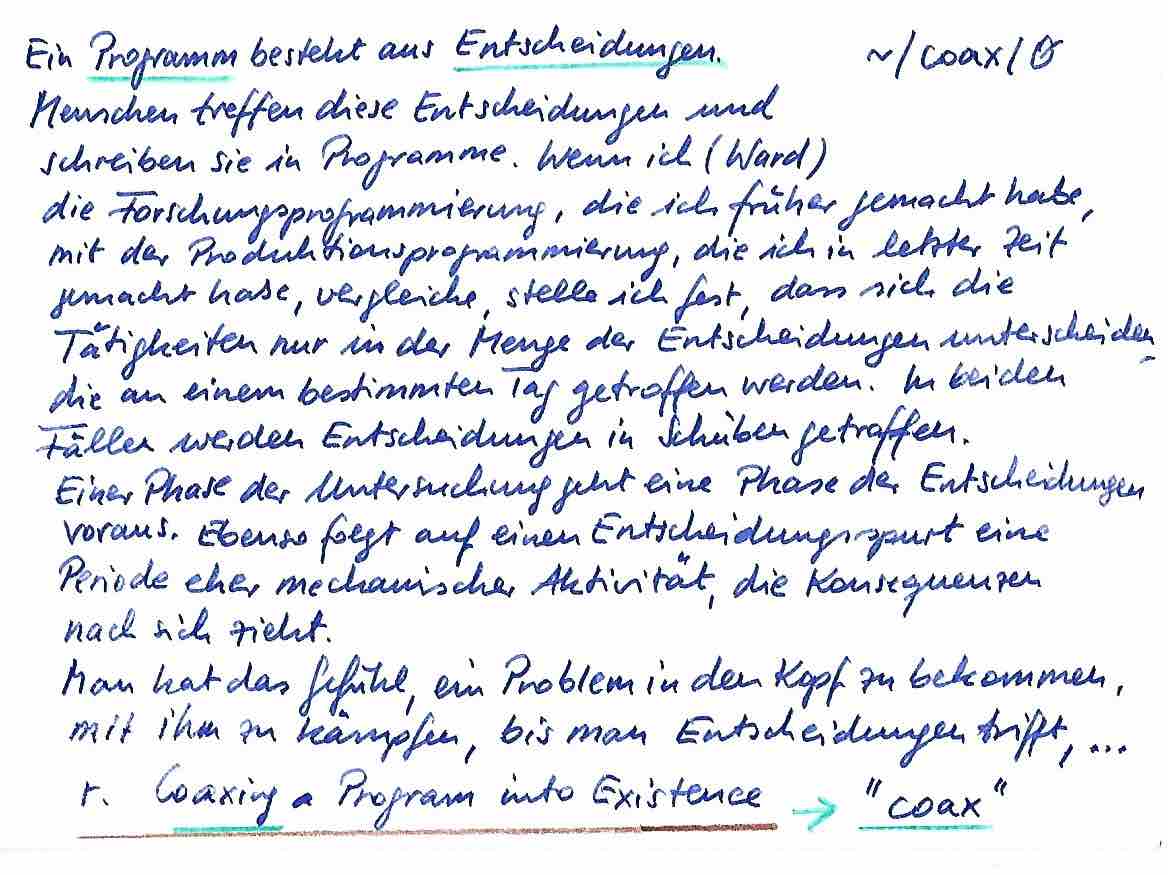 Ein Programm besteht aus Entscheidungen. ~/coax/
Menschen treffen diese Entscheidungen und
schreiben sie in Programme. Wenn ich (Ward)
die Forschungsprogrammierung, die ich früher gemacht habe,
mit der Produktionsprogrammierung, die ich in letzter Zeit
gemacht habe, vergleiche, stelle ich fest, dass sich die
Tätigkeiten nur in der Menge der Entscheidungen unterscheiden,
die an einem bestimmten Tag getroffen werden. In beiden
Fällen werden Entscheidungen in Schüben getroffen.
Einer Phase der Untersuchung geht eine Phase der Entscheidungen
voraus. Ebenso folgt auf einen Entscheidungsspurt eine
Periode eher mechanischer Aktivität, die Konsequenzen
nach sich zieht.
Man hat das Gefühl, ein Problem in den Kopf zu bekommen,
mit ihm zu kämpfen, bis man Entscheidungen trifft, ...
r. Coaxing a Program into Existence → "coax"